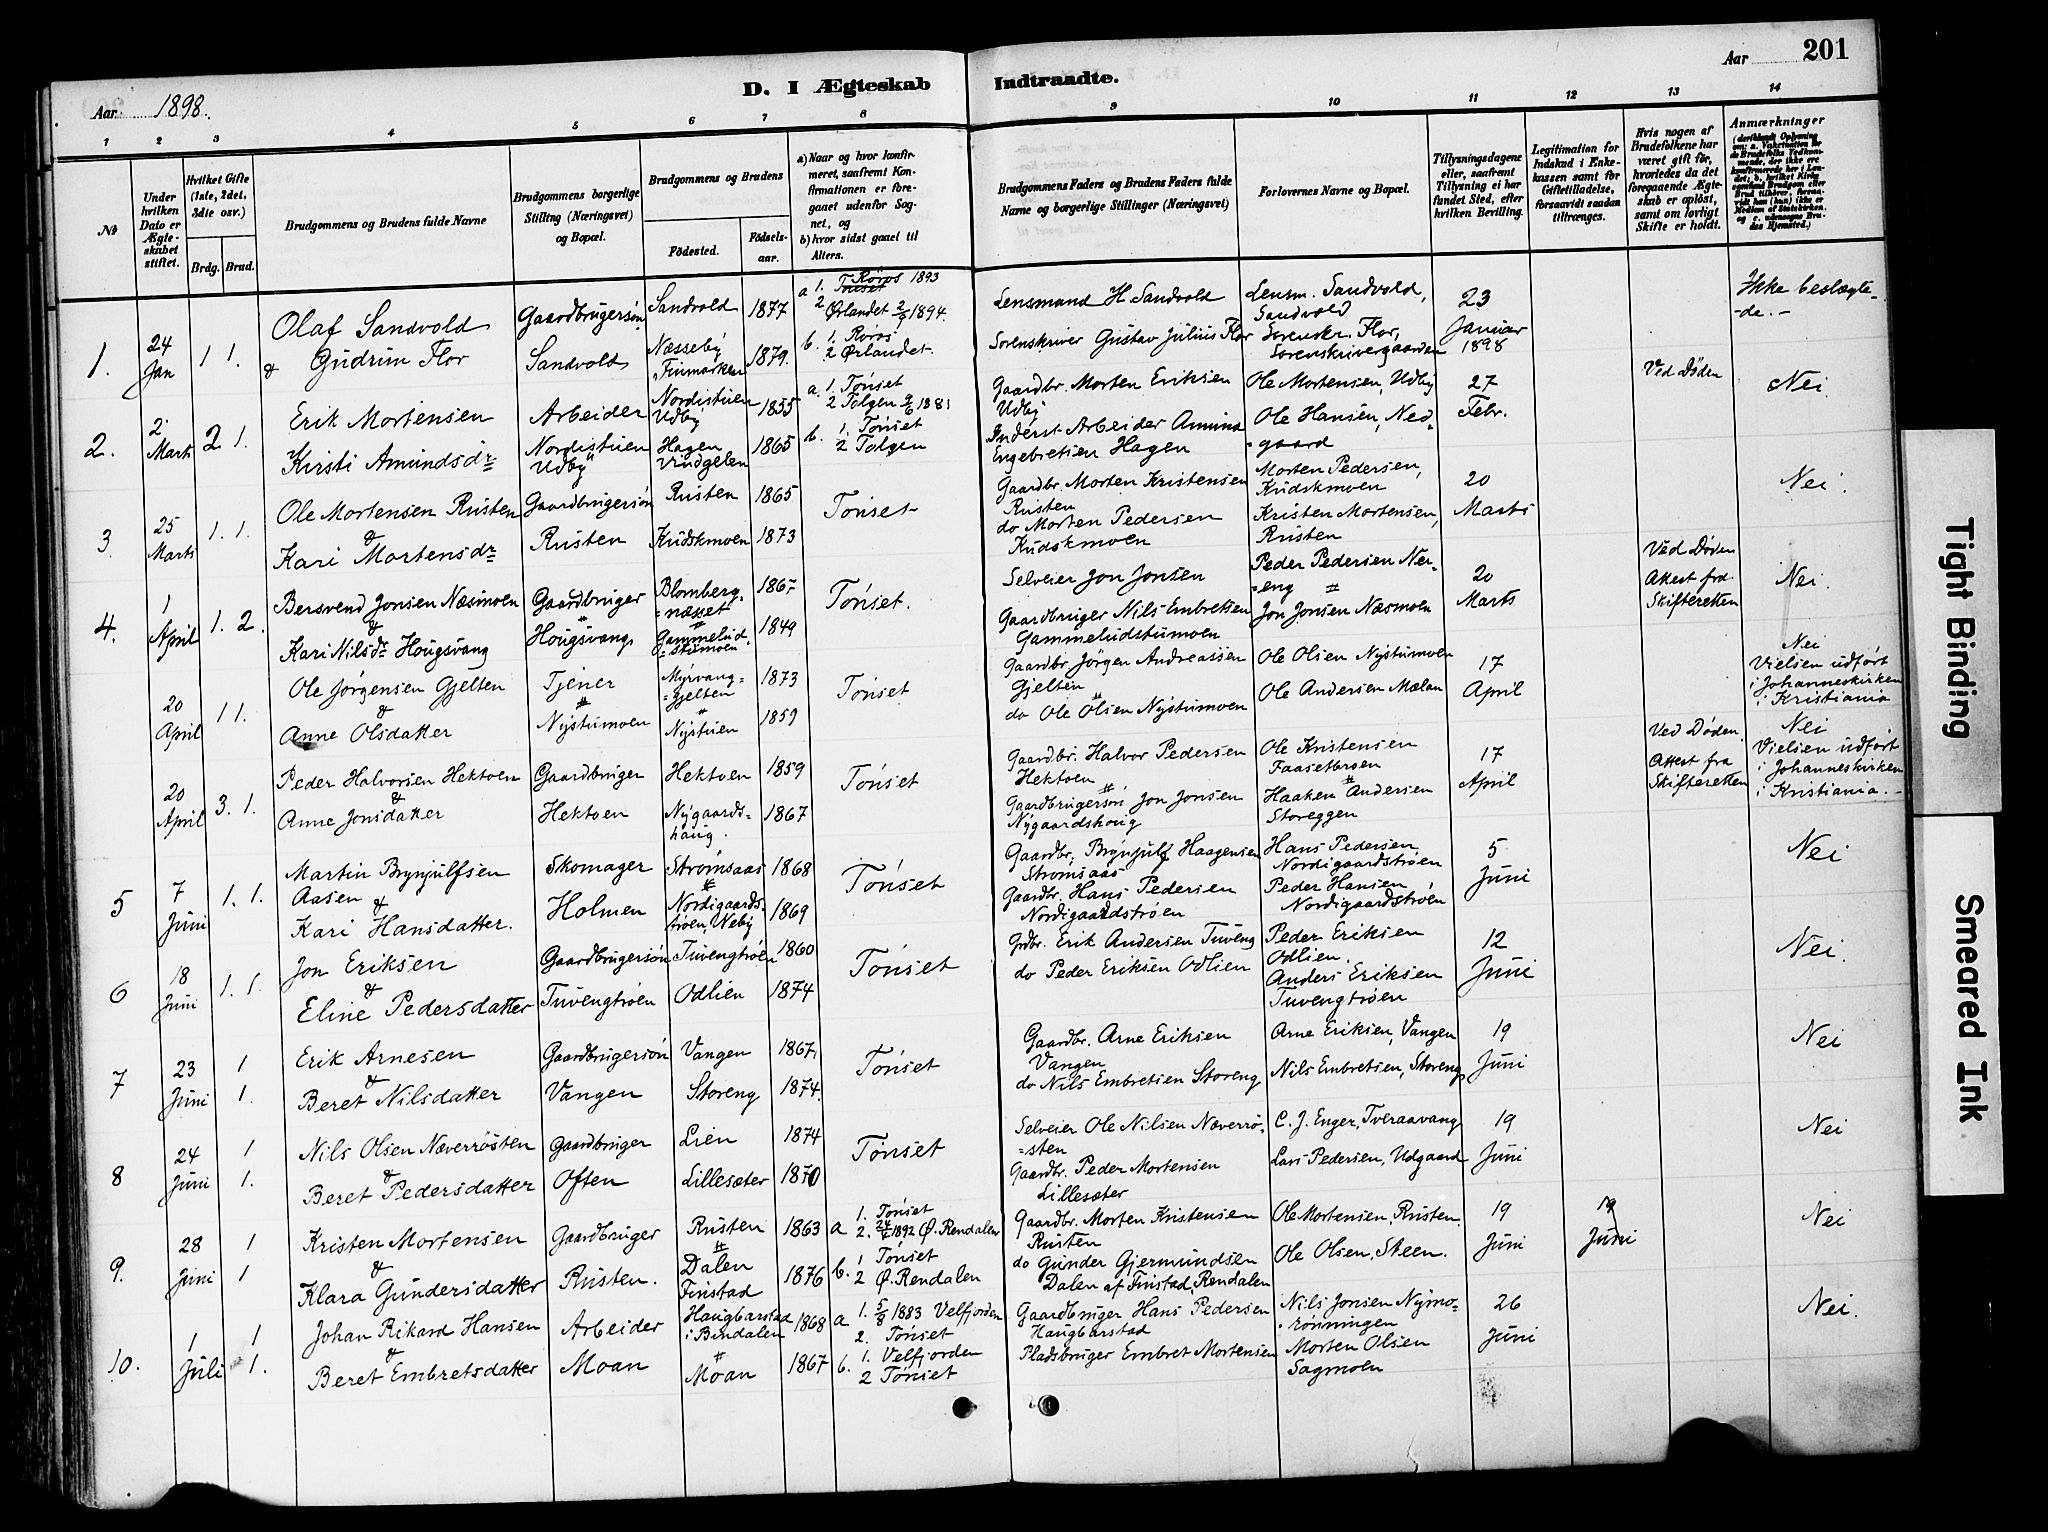 Aar 1898.
D. I Ægteskab Indtraadte.
Aar 201
1 2 3 4 5 6 7 8 9 10 11 12 13 14
No
Under hvilken Dato er Ægteskabet stiftet.
Hvilket Gifte (1ste, 2det, 3die osv.)
Brdg. Brud.
Brudgommens og Brudens fulde Navne
Brudgommens borgerlige Stilling (Næringsvei) og Bopæl.
Brudgommens og Brudens
Födested. Födsels-aar.
a) Naar og hvor konfirmeret, saafremt Konfirmationen er foregaaet udenfor Sognet, og
b) hvor sidst gaaet til Alters.
Brudgommens Faders og Brudens Faders fulde Navne og borgerlige Stillinger (Næringsvei)
Forlovernes Navne og Bopæl.
Tillysningsdagene eller, saafremt Tillysning ei har fundet Sted, efter hvilken Bevilling.
Legitimation for Indskud i Enkekassen samt for Giftetilladelse, forsaavidt saadan tiltrænges.
Hvis nogen af Brudefolkene har været gift för, hvorledes da det foregaaende Ægteskab er oplöst, samt om lovligt Skifte er holdt.
Anmærkninger
1. 24 Jan 1 1. Olaf Sandvold & Gudrun Flor
Gaardbrugersøn Sandvold
Sandvold 1877
Næsseby Finmarken 1879.
a 1. Tönset Röros 1893
2 Ørlandet 1894.
b. 1. Röros
2 Ørlandet.
Lensmand H. Sandvold
Sorenskriver Gustav Julius Flor
Lensm. Sandvold, Sandvold
Sorenskr. Flor, Sorenskrivergaarden
23 Januar 1898
Ikke beslægte-de. -
2. 2 Marts 2 1. Erik Mortensen
Kirsti Amundsdr
Arbeider Nordistuen Udby
Nordistuen Udby 1855
Hagen Vindgelen 1865
a. 1. Tönset
2 Tolgen 1881
b. 1. Tönset
2 Tolgen
Gaardbr. Morten Eriksen Udby
Inderst Arbeider Amund Engebretsen Hagen
Ole Mortensen, Udby
Ole Hansen, Ned-gaard
27 Febr.
Ved Döden
Nei.
3 25 Marts 1. 1. Ole Mortensen Rusten & Kari Mortensdr
Gaardbrugersøn Rusten
Rusten 1865
Kudskmoen 1873
Tönset
Gaardbr. Morten Kristensen Rusten
do Morten Pedersen Kudskmoen
Morten Pedersen, Kudskmoen
Kristen Mortensen, Rusten
20 Marts
Nei.
4. 1 April 1. 2. Bersvend Jonsen Næsmoen & Kari Nilsdr Hougsvang
Gaardbruger Hougsvang
Blomberg-næsset 1867
Gammelud-stumoen 1849
Tönset.
Selveier Jon Jonsen
Gaardbruger Nils Embretsen Gammeludstumoen
Peder Pedersen Ner-eng
Jon Jonsen Næsmoen
20 Marts
Ved Døden Attest fra Skifteretten
Nei.
20 April 1 1. Ole Jörgensen Gjelten & Anne Olsdatter
Tjener Nystumoen
Myrvang-gjelten 1873
Nystuen 1859
Tönset
Gaardbr. Jörgen Andreassen Gjelten
do Ole Olsen Nystumoen
Ole Olsen Nystumoen
Ole Andersen Mælan
17 April
Nei Vielsen udført i Johanneskirken i Kristiania
20 April 3. 1. Peder Halvorsen Hektoen & Anne Jonsdatter
Gaardbruger Hektoen
Hektoen 1859
Nygaards-haug. 1867
Tönset
Gaardbr. Halvor Pedersen Hektoen
Gaardbrugersøn Jon Jonsen Nygaardshoug
Ole Kristensen Faasetbroen
Haaken Andersen Storeggen
17 April
Ved Døden Attest fra Skifteretten
Nei Vielsen udført i Johanneskirken i Kristiania. -
5 7 Juni 1. 1. Martin Brynjulfsen Aasen & Kari Hansdatter.
Skomager Holmen
Strömsaas 1868
Nordigaards-tröen, Neby 1869
Tönset
Gaardbr. Brynjulf Haagensen Strömsaas
Gaardbr. Hans Pedersen Nordigaardströen
Hans Pedersen, Nordigaardströen
Peder Hansen Nordigaardströen
5 Juni
Nei
6 18 Juni 1. 1. Jon Eriksen & Eline Pedersdatter
Gaardbrugersøn Tuvengtröen
Tuvengtröen 1860
Odlien 1874
Tönset
Grdbr. Erik Andersen Tuveng
do Peder Eriksen Odlien
Peder Eriksen Odlien.
Anders Eriksen Tuvengtröen
12 Juni
Nei.
7 23 Juni 1 1. Erik Arnesen & Beret Nilsdatter
Gaardbrugersøn Vangen
Vangen 1867
Storeng 1874.
Tönset
Gaardbr. Arne Eriksen Vangen
do Nils Embretsen Storeng
Arne Eriksen, Vangen
Nils Embretsen, Storeng
19 Juni
Nei
8 24 Juni 1 1. Nils Olsen Næverrösten & Beret Pedersdatter
Gaardbruger Often
Lien 1874
Lillesæter 1870
Tönset
Selveier Ole Nilsen Næverrö-sten
Gaardbr. Peder Mortensen Lillesæter
C. J. Enger, Tveraavang
Lars Pedersen, Udgaard
19 Juni
Nei
9. 28 Juni 1 1 Kristen Mortensen & Klara Gundersdatter
Gaardbruger Rusten.
Rusten 1863
Dalen Finstad 1876
a 1. Tönset
2. 1892 Ø. Rendalen
b. 1 Tönset
2 Ø. Rendalen
Gaardbr. Morten Kristensen Rusten
do Gunder Gjermundsen Dalen af Finstad, Rendalen
Ole Mortensen, Rusten.
Ole Olsen, Steen.
19 Juni
19 Juni
Nei
10. 1 Juli 1 1. Johan Rikard Hansen & Beret Embretsdatter
Arbeider Moan
Haugbarstad i Bindalen 1868
Moan 1867
a 1. 5/8 1883 Velfjorden
2. Tönset
b. 1. Velfjorden
2 Tönset
Gaardbruger Hans Pedersen Haugbarstad
Pladsbruger Embret Mortensen
Nils Jonsen Nymo-rönningen
Morten Olsen Sagmoen
26 Juni
Nei.
Tight Binding
Smeared Ink